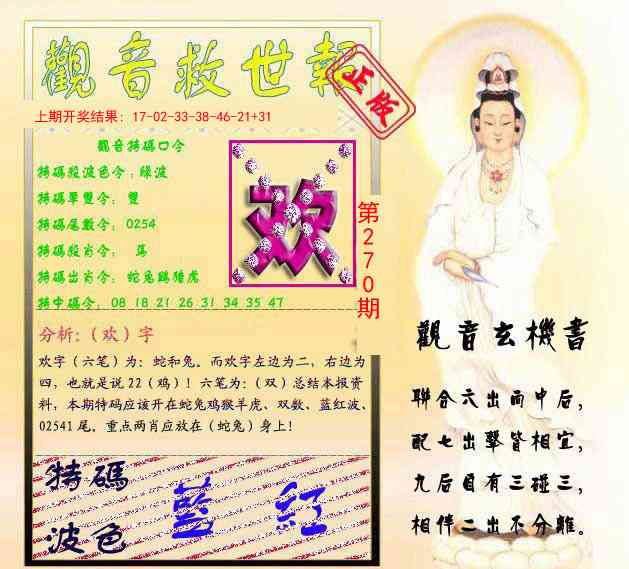 觀音救世報
正版
上期开奖结果：17-02-33-38-46-21+31
觀音特碼口令
特碼殺波色令：綠波
特碼單雙令：雙
特碼尾數令：0254
特碼殺肖令：馬
特碼出肖令：蛇兔鷄猪虎
特中碼令：08 18 21 26 31 34 35 47
欢
第270期
分析：（欢）字
欢字（六笔）为：蛇和兔。而欢字左边为二，右边为
四，也就是说22（鸡）！六笔为：（双）总结本报资
料，本期特码应该开在蛇兔鸡猴羊虎、双数、蓝红波、
02541尾。重点两肖应放在（蛇兔）身上！
特碼
波色
藍 紅
觀音玄機書
聯合六出而中后，
配七出擊皆相宜，
九后自有三碰三，
相伴二出不分離。